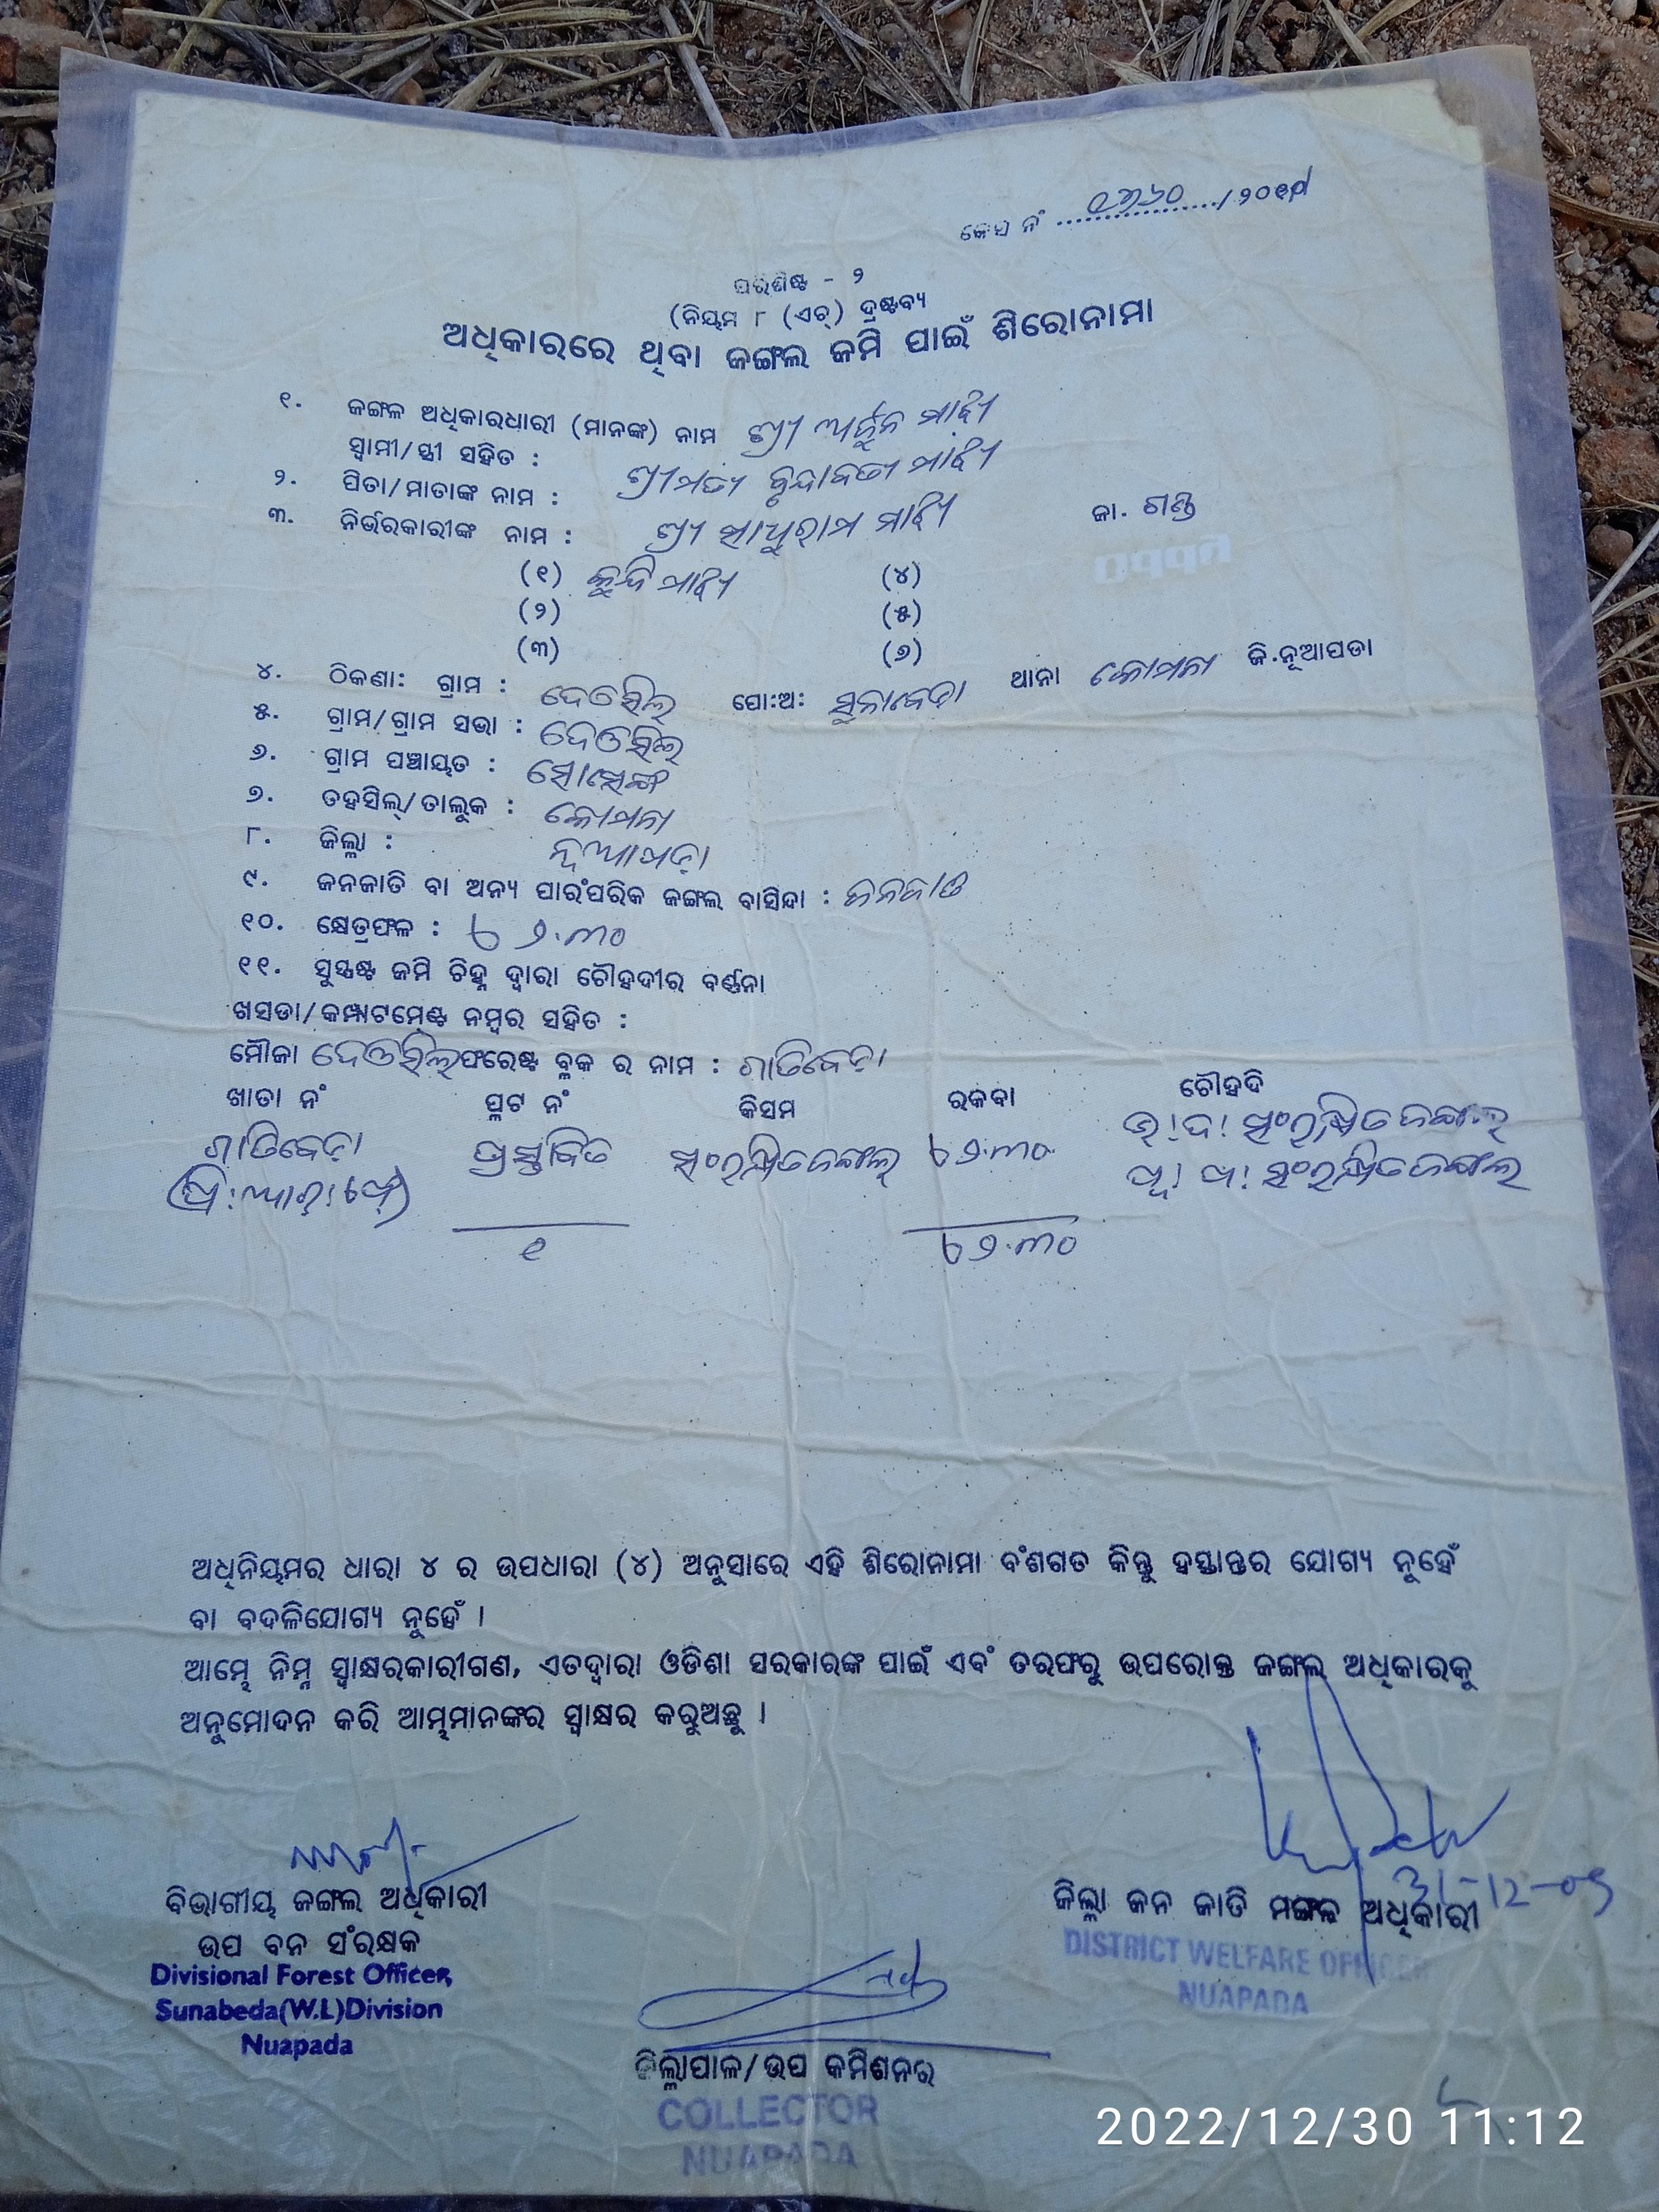 କେସ ନଂ ................./ ୨୦
ପରିଶିଷ୍ଟ - ୨
(ନିୟମ ୮ (ଏଚ୍) ଦ୍ରଷ୍ଟବ୍ୟ
ଅଧିକାରରେ ଥିବା ଜଙ୍ଗଲ ଜମି ପାଇଁ ଶିରୋନାମା
୧. ଜଙ୍ଗଳ ଅଧିକାରଧାରୀ (ମାନଙ୍କ) ନାମ ଶ୍ରୀ ଅର୍ଜୁନ ମାଝି
ସ୍ୱାମୀ/ସ୍ତ୍ରୀ ସହିତ : ଶ୍ରୀମତୀ ବୃନ୍ଦାବତୀ ମାଝି
୨. ପିତା/ମାତାଙ୍କ ନାମ : ଶ୍ରୀ ସାଧୁରାମ ମାଝି ଜା. ଗଣ୍ଡ
୩. ନିର୍ଭରକାରୀଙ୍କ ନାମ :
(୧) କୁନ୍ଦି ମାଝି (୪)
(୨) (୫)
(୩) (୬)
୪. ଠିକଣା: ଗ୍ରାମ : ଦେଓସିଲ୍ ପୋ:ଅ: ସୁନାବେଡା ଥାନା କୋମନା ଜି.ନୂଆପଡା
୫. ଗ୍ରାମ/ଗ୍ରାମ ସଭା : ଦେଓସିଲ୍
୬. ଗ୍ରାମ ପଞ୍ଚାୟତ :
୭. ତହସିଲ୍/ତାଲୁକ : କୋମନା
୮. ଜିଲ୍ଲା : ନୂଆପଡ଼ା
୯. ଜନଜାତି ବା ଅନ୍ୟ ପାରଂପରିକ ଜଙ୍ଗଲ ବାସିନ୍ଦା : ଜନଜାତି
୧୦. କ୍ଷେତ୍ରଫଳ : ୭.୩୦
୧୧. ସୁସ୍ପଷ୍ଟ ଜମି ଚିହ୍ନ ଦ୍ୱାରା ଚୌହଦୀର ବର୍ଣ୍ଣନା
ଖସଡା/କମ୍ପାଟମେଣ୍ଟ ନମ୍ବର ସହିତ :
ମୌଜା ଦେଓସିଲ୍ ଫରେଷ୍ଟ ବ୍ଲକ ର ନାମ : ଗାତିବେଡ଼ା
ଖାତା ନଂ ପ୍ଳଟ ନଂ କିସମ ରକବା ଚୌହଦି
ଗାତିବେଡ଼ା ପ୍ରସ୍ତାବିତ ସଂରକ୍ଷିତ ଜଙ୍ଗଲ୍ ୭.୩୦ ଉ।ଦ। ସଂରକ୍ଷିତ ଜଙ୍ଗଲ୍
(ପି.ଆର୍.ଏଫ୍) ପୂ। ପ। ସଂରକ୍ଷିତ ଜଙ୍ଗଲ
୧ ୭.୩୦
ଅଧିନିୟମର ଧାରା ୪ ର ଉପଧାରା (୪) ଅନୁସାରେ ଏହି ଶିରୋନାମା ବଂଶଗତ କିନ୍ତୁ ହସ୍ତାନ୍ତର ଯୋଗ୍ୟ ନୁହେଁ
ବା ବଦଳିଯୋଗ୍ୟ ନୁହେଁ ।
ଆମ୍ଭେ ନିମ୍ନ ସ୍ୱାକ୍ଷରକାରୀଗଣ, ଏତଦ୍ୱାରା ଓଡିଶା ସରକାରଙ୍କ ପାଇଁ ଏବଂ ତରଫରୁ ଉପରୋକ୍ତ ଜଙ୍ଗଲ୍ ଅଧିକାରକୁ
ଅନୁମୋଦନ କରି ଆମ୍ଭମାନଙ୍କର ସ୍ୱାକ୍ଷର କରୁଅଛୁ ।
ବିଭାଗୀୟ ଜଙ୍ଗଲ ଅଧିକାରୀ
ଉପ ବନ ସଂରକ୍ଷକ
Divisional Forest Officer,
Sunabeda(W.L)Division
Nuapada
31-12-09
ଜିଲ୍ଲା ଜନ ଜାତି ମଙ୍ଗଳ ଅଧିକାରୀ
DISTRICT WELFARE OFFICER
NUAPADA
ଜିଲ୍ଲାପାଳ/ଉପ କମିଶନର
COLLECTOR
NUAPADA
2022/12/30 11:12